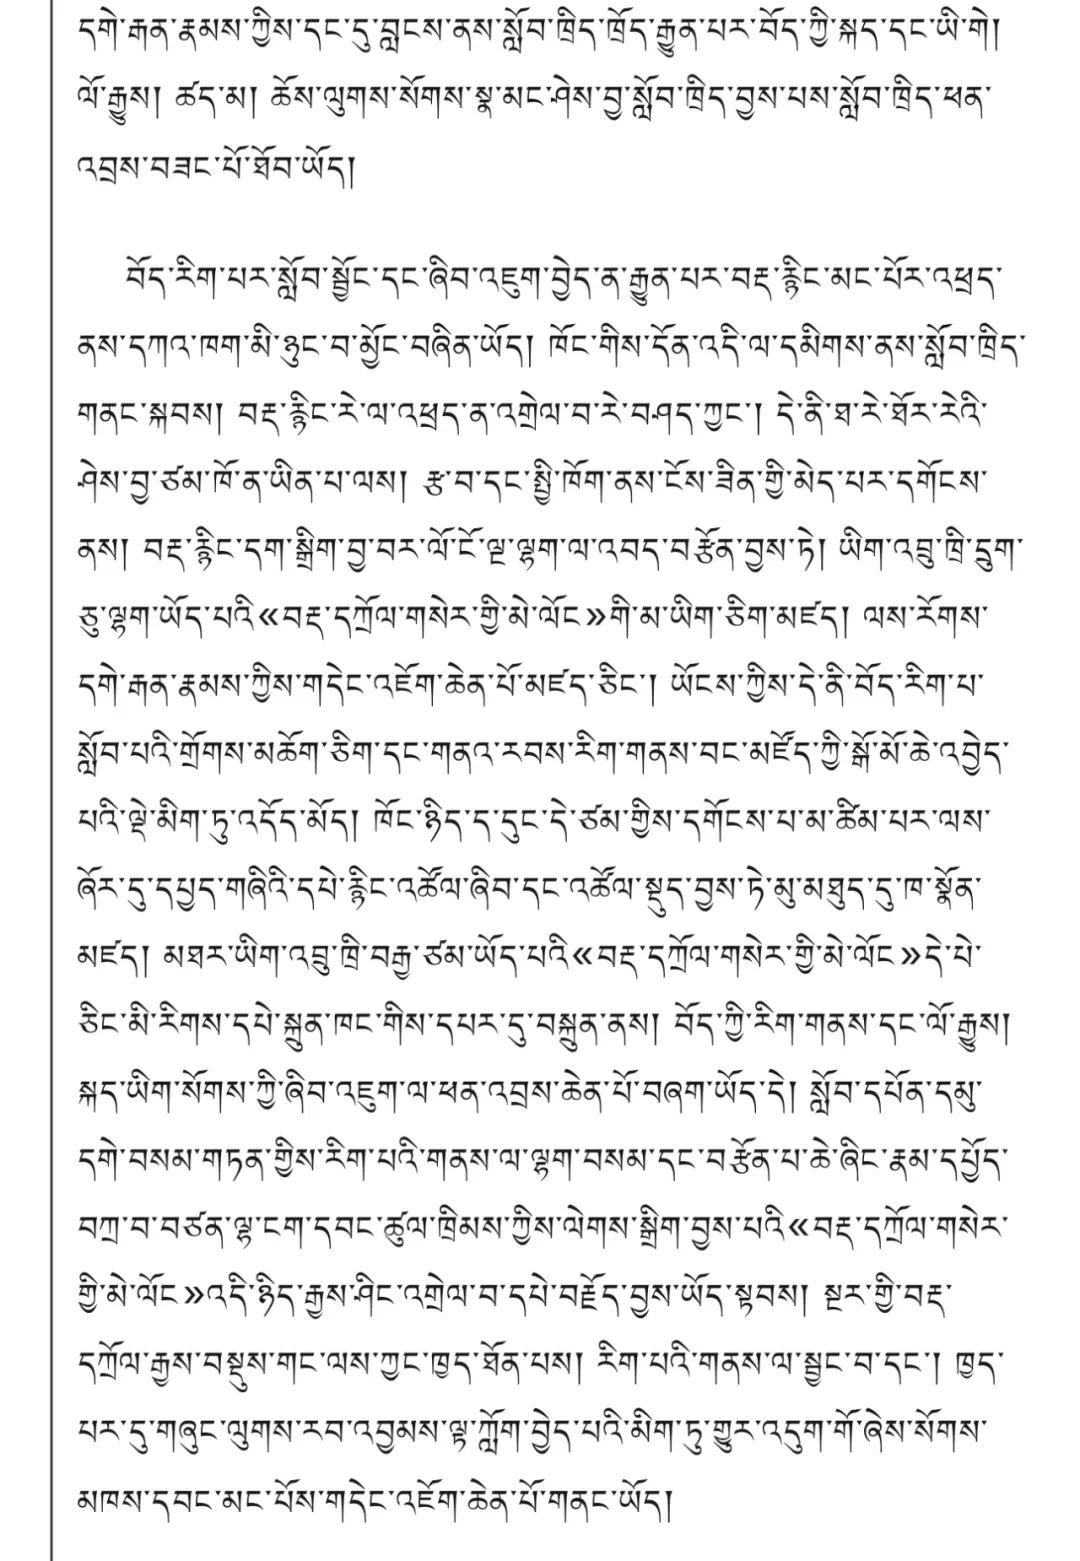 དགེ་རྒན་རྣམས་ཀྱིས་དང་དུ་བླངས་ནས་སློབ་ཁྲིད་ཁྲོད་རྒྱུན་པར་བོད་ཀྱི་སྐད་དང་ཡི་གེ།
ལོ་རྒྱུས། ཚད་མ། ཆོས་ལུགས་སོགས་སྣ་མང་ཤེས་བྱ་སློབ་ཁྲིད་བྱས་པས་སློབ་ཁྲིད་ཕན་
འབྲས་བཟང་པོ་ཐོབ་ཡོད།
བོད་རིག་པར་སློབ་སྦྱོང་དང་ཞིབ་འཇུག་བྱེད་ན་རྒྱུན་པར་བརྡ་རྙིང་མང་པོར་འཕྲད་
ནས་དཀའ་ཁག་མི་ཉུང་བ་མྱོང་བཞིན་ཡོད། ཁོང་གིས་དོན་འདི་ལ་དམིགས་ནས་སློབ་ཁྲིད་
གནང་སྐབས། བརྡ་རྙིང་རེ་ལ་འཕྲད་ན་འགྲེལ་བ་རེ་བཤད་ཀྱང་། དེ་ནི་ཐ་རེ་ཐོར་རེའི་
ཤེས་བྱ་ཙམ་ཁོ་ན་ཡིན་པ་ལས། རྩ་བ་དང་སྤྱི་ཁོག་ནས་ངོས་ཟིན་གྱི་མེད་པར་དགོངས་
ནས། བརྡ་རྙིང་དག་སྒྲིག་བྱ་བར་ལོ་ངོ་ལྔ་ལྷག་ལ་འབད་བརྩོན་བྱས་ཏེ། ཡིག་འབྲུ་ཁྲི་དྲུག་
ཅུ་ལྷག་ཡོད་པའི«བརྡ་དཀྲོལ་གསེར་གྱི་མེ་ལོང»གི་མ་ཡིག་ཅིག་མཛད། ལས་རོགས་
དགེ་རྒན་རྣམས་ཀྱིས་གདེང་འཇོག་ཆེན་པོ་མཛད་ཅིང་། ཡོངས་ཀྱིས་དེ་ནི་བོད་རིག་པ་
སློབ་པའི་གྲོགས་མཆོག་ཅིག་དང་གནའ་རབས་རིག་གནས་བང་མཛོད་ཀྱི་སྒོ་མོ་ཆེ་འབྱེད་
པའི་ལྡེ་མིག་ཏུ་འདོད་མོད། ཁོང་ཉིད་ད་དུང་དེ་ཙམ་གྱིས་དགོངས་པ་མ་ཚིམ་པར་ལས་
ཞོར་དུ་དཔྱད་གཞིའི་དཔེ་རྙིང་འཚོལ་ཞིབ་དང་འཚོལ་སྡུད་བྱས་ཏེ་མུ་མཐུད་དུ་ཁ་སྣོན་
མཛད། མཐར་ཡིག་འབྲུ་ཁྲི་བརྒྱ་ཙམ་ཡོད་པའི«བརྡ་དཀྲོལ་གསེར་གྱི་མེ་ལོང»དེ་པེ་
ཅིང་མི་རིགས་དཔེ་སྐྲུན་ཁང་གིས་དཔར་དུ་བསྐྲུན་ནས། བོད་ཀྱི་རིག་གནས་དང་ལོ་རྒྱུས།
སྐད་ཡིག་སོགས་ཀྱི་ཞིབ་འཇུག་ལ་ཕན་འབྲས་ཆེན་པོ་བཞག་ཡོད་དེ། སློབ་དཔོན་དམུ་
དགེ་བསམ་གཏན་གྱིས་རིག་པའི་གནས་ལ་ལྷག་བསམ་དང་བརྩོན་པ་ཆེ་ཞིང་རྣམ་དཔྱོད་
བཀྲ་བ་བཙན་ལྷ་ངག་དབང་ཚུལ་ཁྲིམས་ཀྱིས་ལེགས་སྒྲིག་བྱས་པའི«བརྡ་དཀྲོལ་གསེར་
གྱི་མེ་ལོང»འདི་ཉིད་རྒྱས་ཤིང་འགྲེལ་བ་དཔེ་བརྗོད་བྱས་ཡོད་སྟབས། སྔར་གྱི་བརྡ་
དཀྲོལ་རྒྱས་བསྡུས་གང་ལས་ཀྱང་ཁྱད་ཐོན་པས། རིག་པའི་གནས་ལ་སྦྱང་བ་དང་། ཁྱད་
པར་དུ་གཞུང་ལུགས་རབ་འབྱམས་ལྟ་ཀློག་བྱེད་པའི་མིག་ཏུ་གྱུར་འདུག་གོ་ཞེས་སོགས་
མཁས་དབང་མང་པོས་གདེང་འཇོག་ཆེན་པོ་གནང་ཡོད།